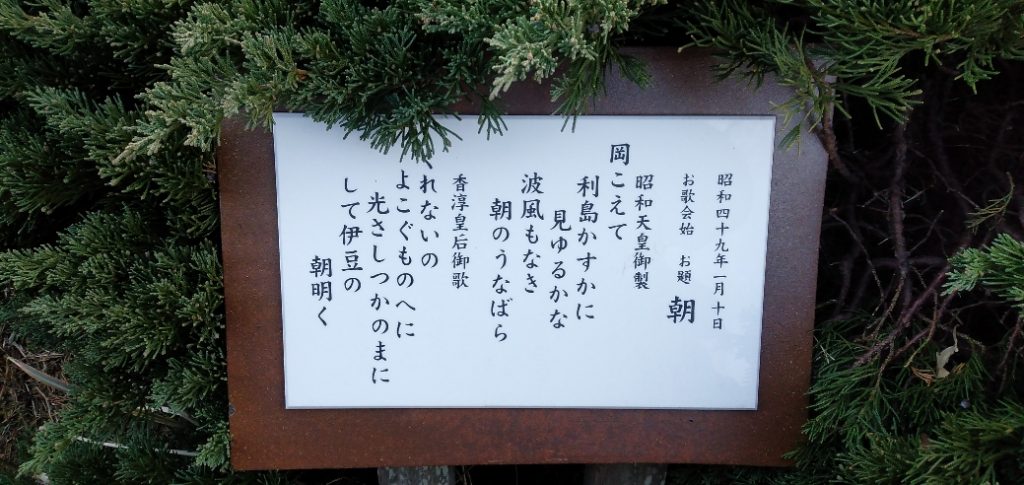 昭和四十九年一月十日
お歌会始 お題 朝
昭和天皇御製
岡こえて
利島かすかに
見ゆるかな
波風もなき
朝のうなばら
香淳皇后御歌
くれないの
よこぐものへに
光さしつかのまに
して伊豆の
朝明く